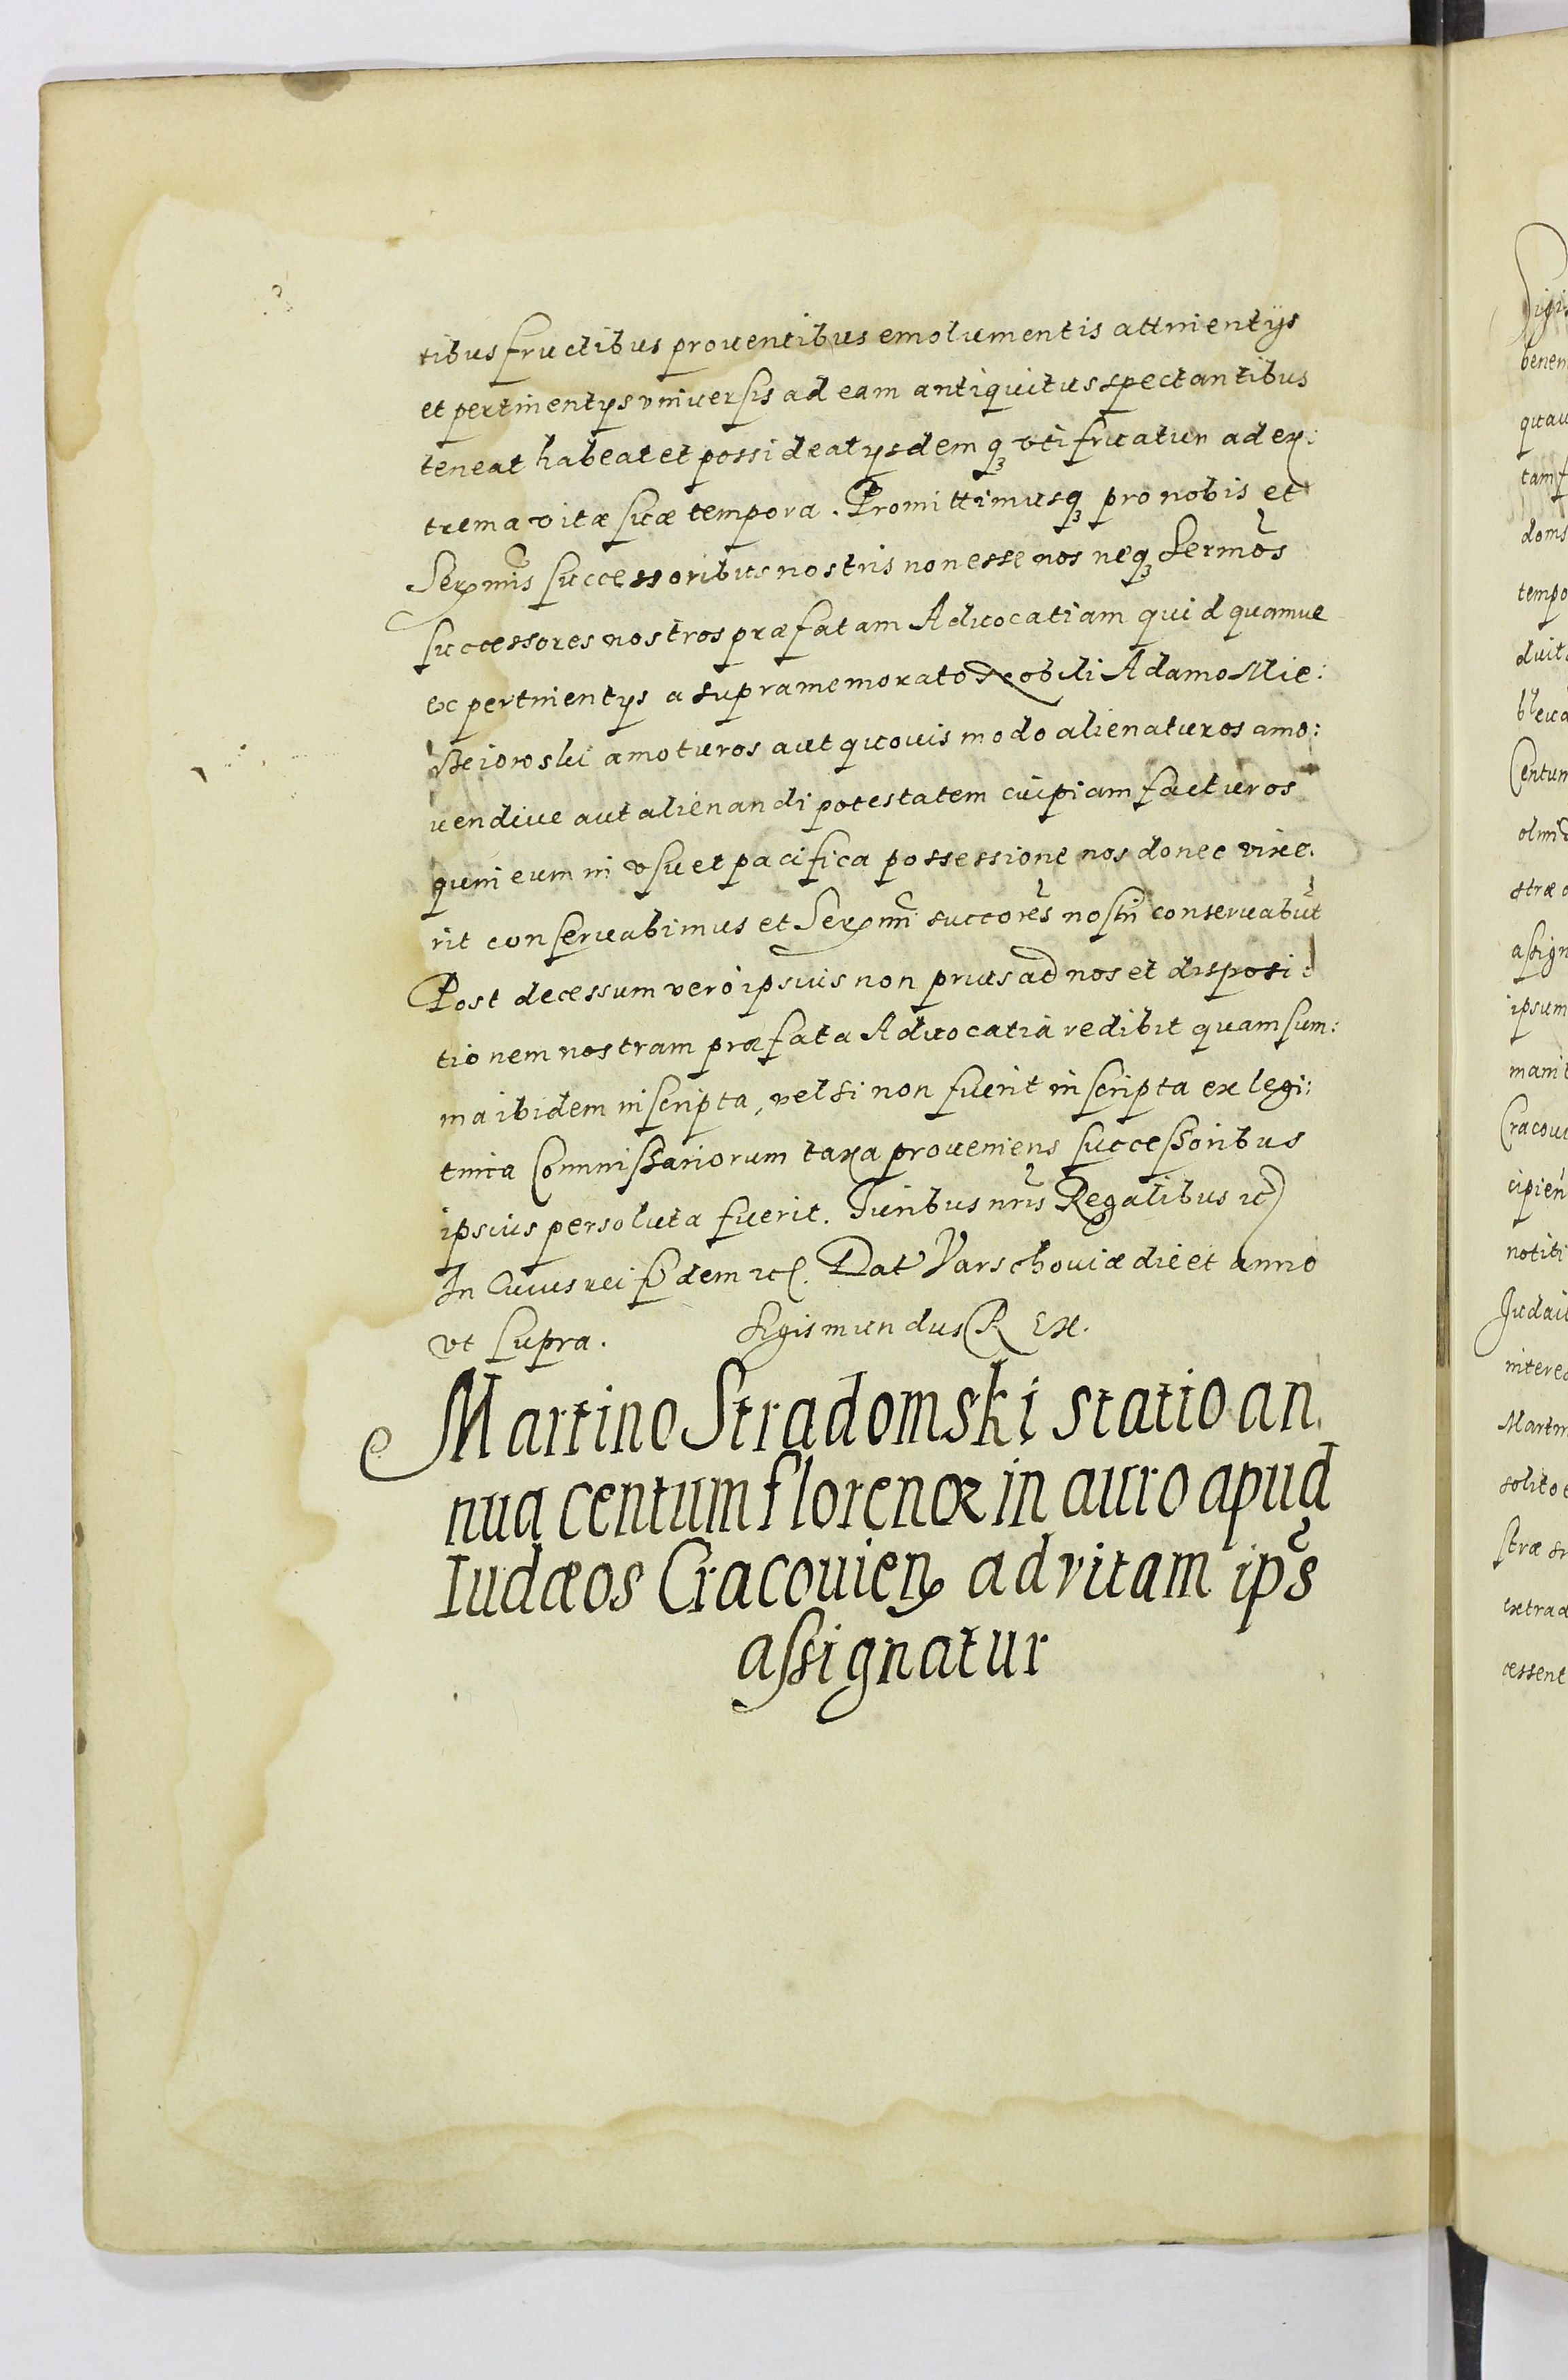 tibus fructibus prouentibus emolumentis attinentijs
et pertinentijs vniuersis ad eam antiquitus spectantibus
teneat habeat et possideat ijsdemq₃ vti fruatur ad ex:
trema vitæ suæ tempora. Promittimusq₃ pro nobis et
Serx̃mis successoribus nostris non esse nos neq₃ Sermõs
successores nostros præfatam Aduocatiam quidquamue
ex pertinentijs a supramemorato Nobili Adamo Mie:
amoturos aut quouis modo alienaturos amo:
uendiue aut alienandi potestatem cuipiam facturos
quin eum in vsu et pacifica possessione nos donec vixe.
rit conseruabimus et Serx̃mi succorẽs nostri conseruabũt
Post decessum vero ipsius non prius ad nos et disposi:
tionem nostram præfata Aduocatia redibit quam sum:
ma ibidem inscripta, vel si non fuerit inscripta ex legi:
tima Commissariorum taxa proueniens successoribus
ipsius persoluta fuerit. Iuribus nr̃is Regalibus etc
In Cuius rei fidem etc. Dat Varschouiæ die et anno
vt supra. Sigismundus Rex.
Martino Stradomski statio an.
nua centum florenoꝝ in auro apud
Iudæos Cracouien̄ ad vitam ip̃s
assignatur
Sigis
benem
quau
tam f
doms
tempo
duit
Centum
stræ
assign
ipsum
manit
Cracoui
cipien
notiti
Iudai
interea
Martin
solito
stræ
extrad
cessent